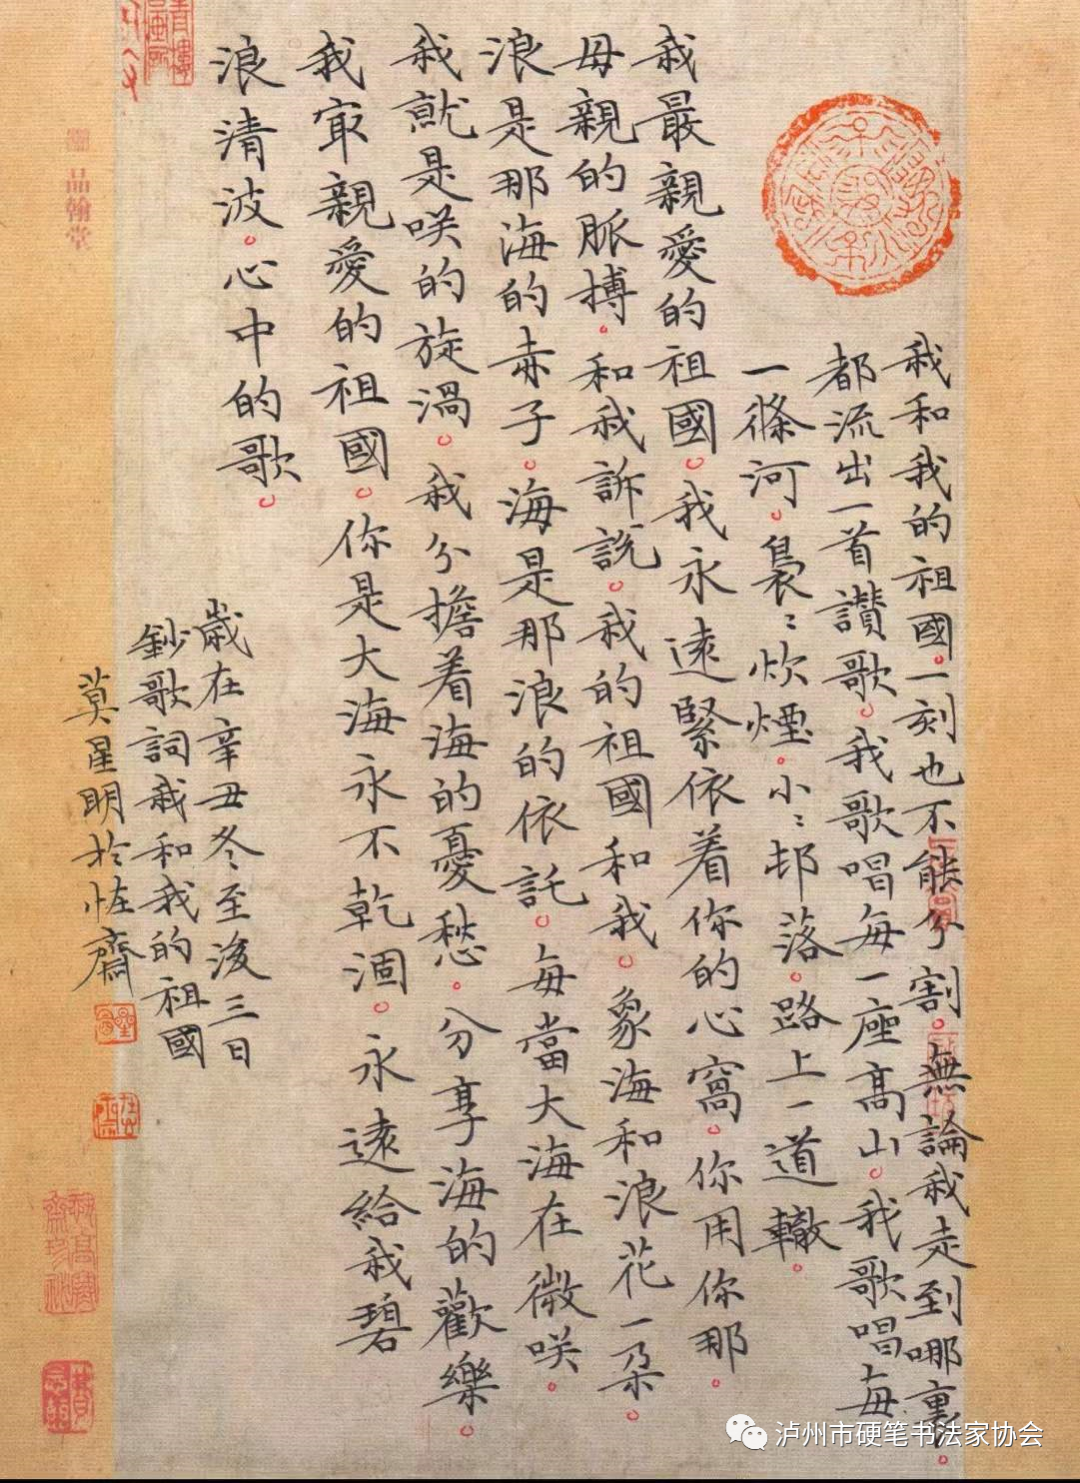 我和我的祖國。一刻也不能分割。無論我走到哪裏。
都流出一首讚歌。我歌唱每一座高山。我歌唱每
一條河。裊〻炊煙。小〻邨落。路上一道轍。
我最親愛的祖國。我永遠緊依着你的心窩。你用你那。
母親的脈搏。和我訴説。我的祖國和我。象海和浪花一朵。
浪是那海的赤子。海是那浪的依託。每當大海在微咲。
我就是咲的旋渦。我分擔着海的憂愁。分享海的歡樂。
我冣親愛的祖國。你是大海永不乾涸。永遠給我碧
浪清波。心中的歌。
歲在辛丑冬至後三日
鈔歌詞我和我的祖國
莫星明於恠齋
品翰堂
泸州市硬笔书法家协会